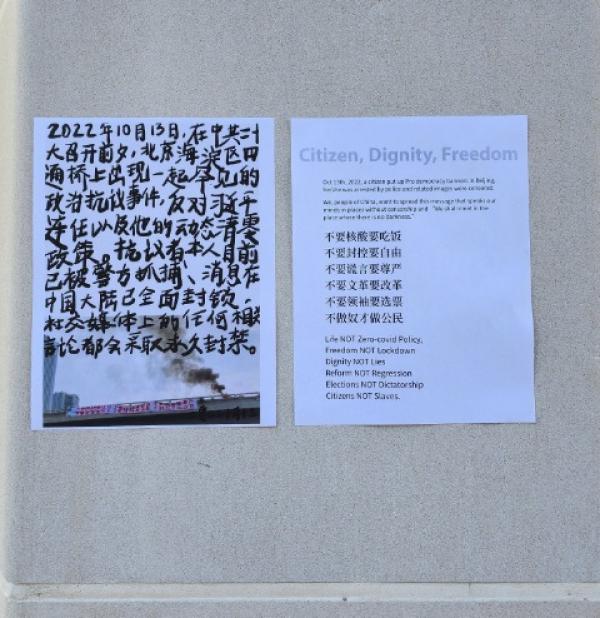 2022年10月13日,在中共二十
大召开前夕,北京海淀区四
通桥上出现一起罕见的
政治抗议事件,反对习近平
连任以及他的动态清零
政策。抗议者本人目前
已被警方抓捕、消息在
中国大陆已全面封锁,
社交媒体上的任何相关
言论都会采取永久封禁。
Citizen, Dignity, Freedom
Oct 13th, 2022, a citizen put up Pro democracy banners in Beijing,
he/she was arrested by police and related images were censored.
We, people of China, want to spread this message that speaks our
minds in places without censorship and "We shall meet in the
place where there is no darkness."
不要核酸要吃饭
不要封控要自由
不要谎言要尊严
不要文革要改革
不要领袖要选票
不做奴才做公民
Life NOT Zero-covid Policy,
Freedom NOT Lockdown
Dignity NOT Lies
Reform NOT Regression
Elections NOT Dictatorship
Citizens NOT Slaves.